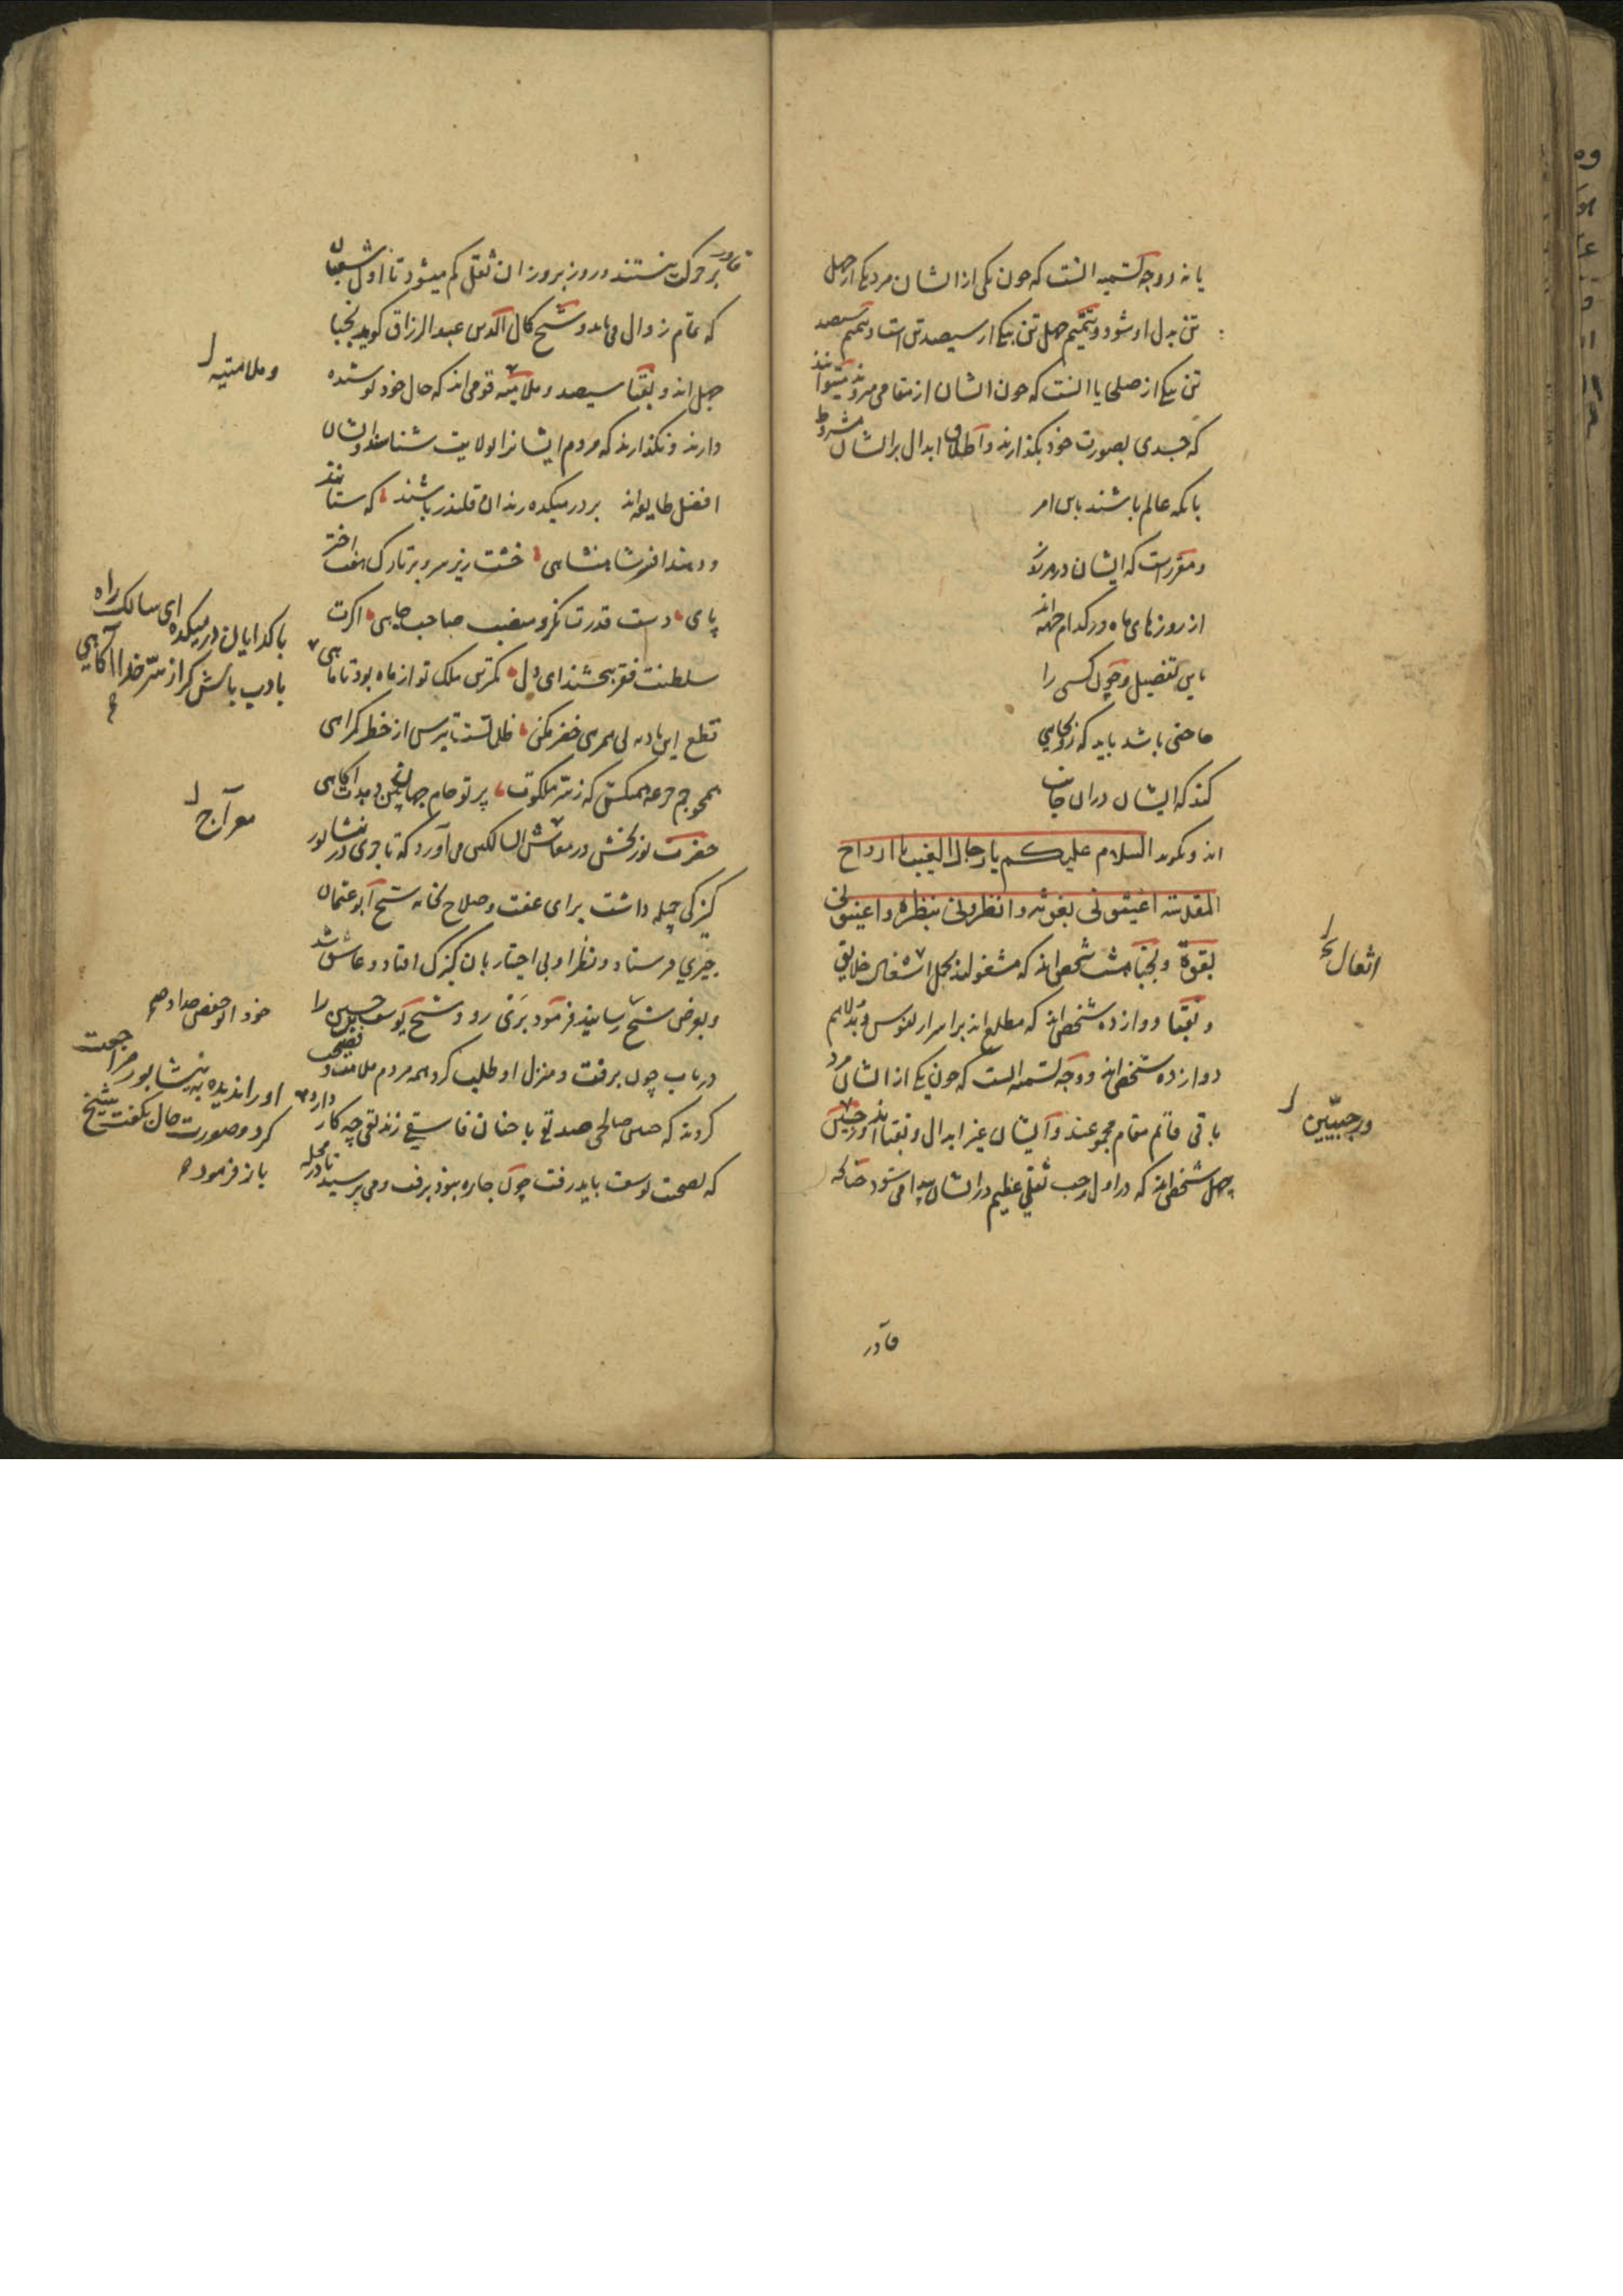 یا نه و وجه تسمیه آنست که چون یکی از ایشان مرد یکی از چهل
تن بدل او شود و تتمیم چهل تن بیکی از سیصد تن است و تتمیم سیصد
تن بیکی از صلحا یا آنست که چون ایشان از مقامی میروند میتوانند
که جسدی بصورت خود بگذارند و اطلاق ابدال بر ایشان مشروط
بانکه عالم باشند باین امر
و مقررست که ایشان در هر روز
از روزهای ماه در کدام جهة اند
باین تفصیل و چون کسی را
حاجتی باشد باید که رو بجایی
کند که ایشان در آن جانب
اند و بگوید السلام علیکم یا رجال الغیب یا ارواح
المقدسة اغیثونی بغوثة وانظرونی بنظرة واعینونی
بقوة و نجبا هشت شخص اند که مشغولند بحمل اثقال خلایق
و نقبا دوازده شخص اند که مطلع اند بر اسرار نفوس و بدلا هم
دوازده شخص اند و وجه تسمیه آنست که چون یکی از ایشان مرد
باقی قائم مقام مجموعند و ایشان غیر ابدال و نقبا اند و رجبیین
چهل شخص اند که در اول رجب ثقلی عظیم در ایشان پیدا می شود چنانکه
اثقال
ورجبیّین
قادر
قادر بر حرکت نیستند و روز بروز آن ثقل کم میشود تا اول شعبان
که تمام زوال می یابد و شیخ کمال الدین عبد الرزاق گوید نجبا
چهل اند و نقبا سیصد و ملامتیه قومی اند که حال خود پوشیده
دارند و نگذارند که مردم ایشانرا بولایت شناسند و ایشان
افضل طایفه اند بر در میکده رندان قلندر باشند که ستانند
و دهند افسر شاهنشاهی خشت زیر سر و بر تارک هفت اختر
پای دست قدرت نگر و منصب صاحب جاهی اگرت
سلطنت فقر ببخشند ای دل کمترین ملک تو از ماه بود تا ماهی
قطع این بادیه بی همرهی خضر مکن ظلماتست بترس از خطر گمراهی
همچو جم جرعه می کش که ز سر ملکوت پرتو جام جهان بین دهدت آگاهی
حضرت نوربخش در معاش السالکین می آورد که تاجری در نشابور
کنیزکی جمیله داشت برای عفت و صلاح بخانه شیخ ابو عثمان
حیری فرستاد و نظر او بی اختیار بان کنیزک افتاد و عاشق شد
و بعرض شیخ رسانید فرمود بری رو و شیخ یوسف حسین را
دریاب چون برفت و منزل او طلب کرد همه مردم ملامت و نصیحت
کردند که چنین صالحی صدیقی با چنان فاسقی زندیقی چه کار دارد
که بصحبت یوسف باید رفت چون چاره نبود برفت و می پرسید تا در محله
وملامتیه
با گدایان در میکده ای سالک راه
با ادب باش گر از سرّ خدا آگاهی
معراج
خود ابو حفص حداد
او را ندیده به نیشابور مراجعت
کرد و صورت حال بگفت شیخ
باز فرموده